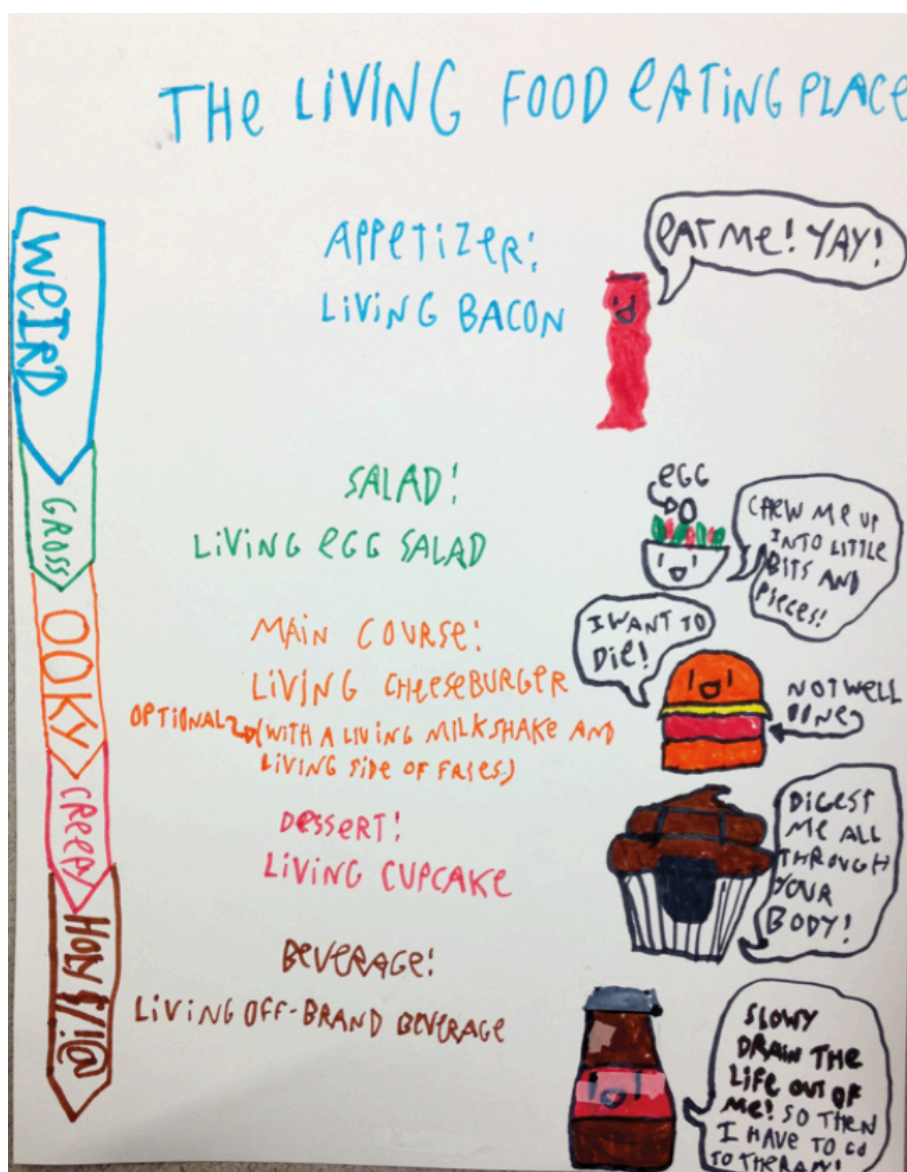 THE LIVING FOOD EATING PLACE
WEIRD
APPETIZER:
LIVING BACON
EAT ME! YAY!
GROSS
SALAD:
LIVING EGG SALAD
EGG
CHEW ME UP
INTO LITTLE
BITS AND
PIECES!
OOKY
MAIN COURSE:
LIVING CHEESEBURGER
OPTIONAL (WITH A LIVING MILKSHAKE AND
LIVING SIDE OF FRIES)
I WANT TO
DIE!
NOT WELL
DONE
CREEPY
DESSERT:
LIVING CUPCAKE
DIGEST
ME ALL
THROUGH
YOUR
BODY!
HOLY $/!@
BEVERAGE:
LIVING OFF-BRAND BEVERAGE
SLOWY
DRAIN THE
LIFE OUT OF
ME! SO THEN
I HAVE TO GO
TO THERAPY